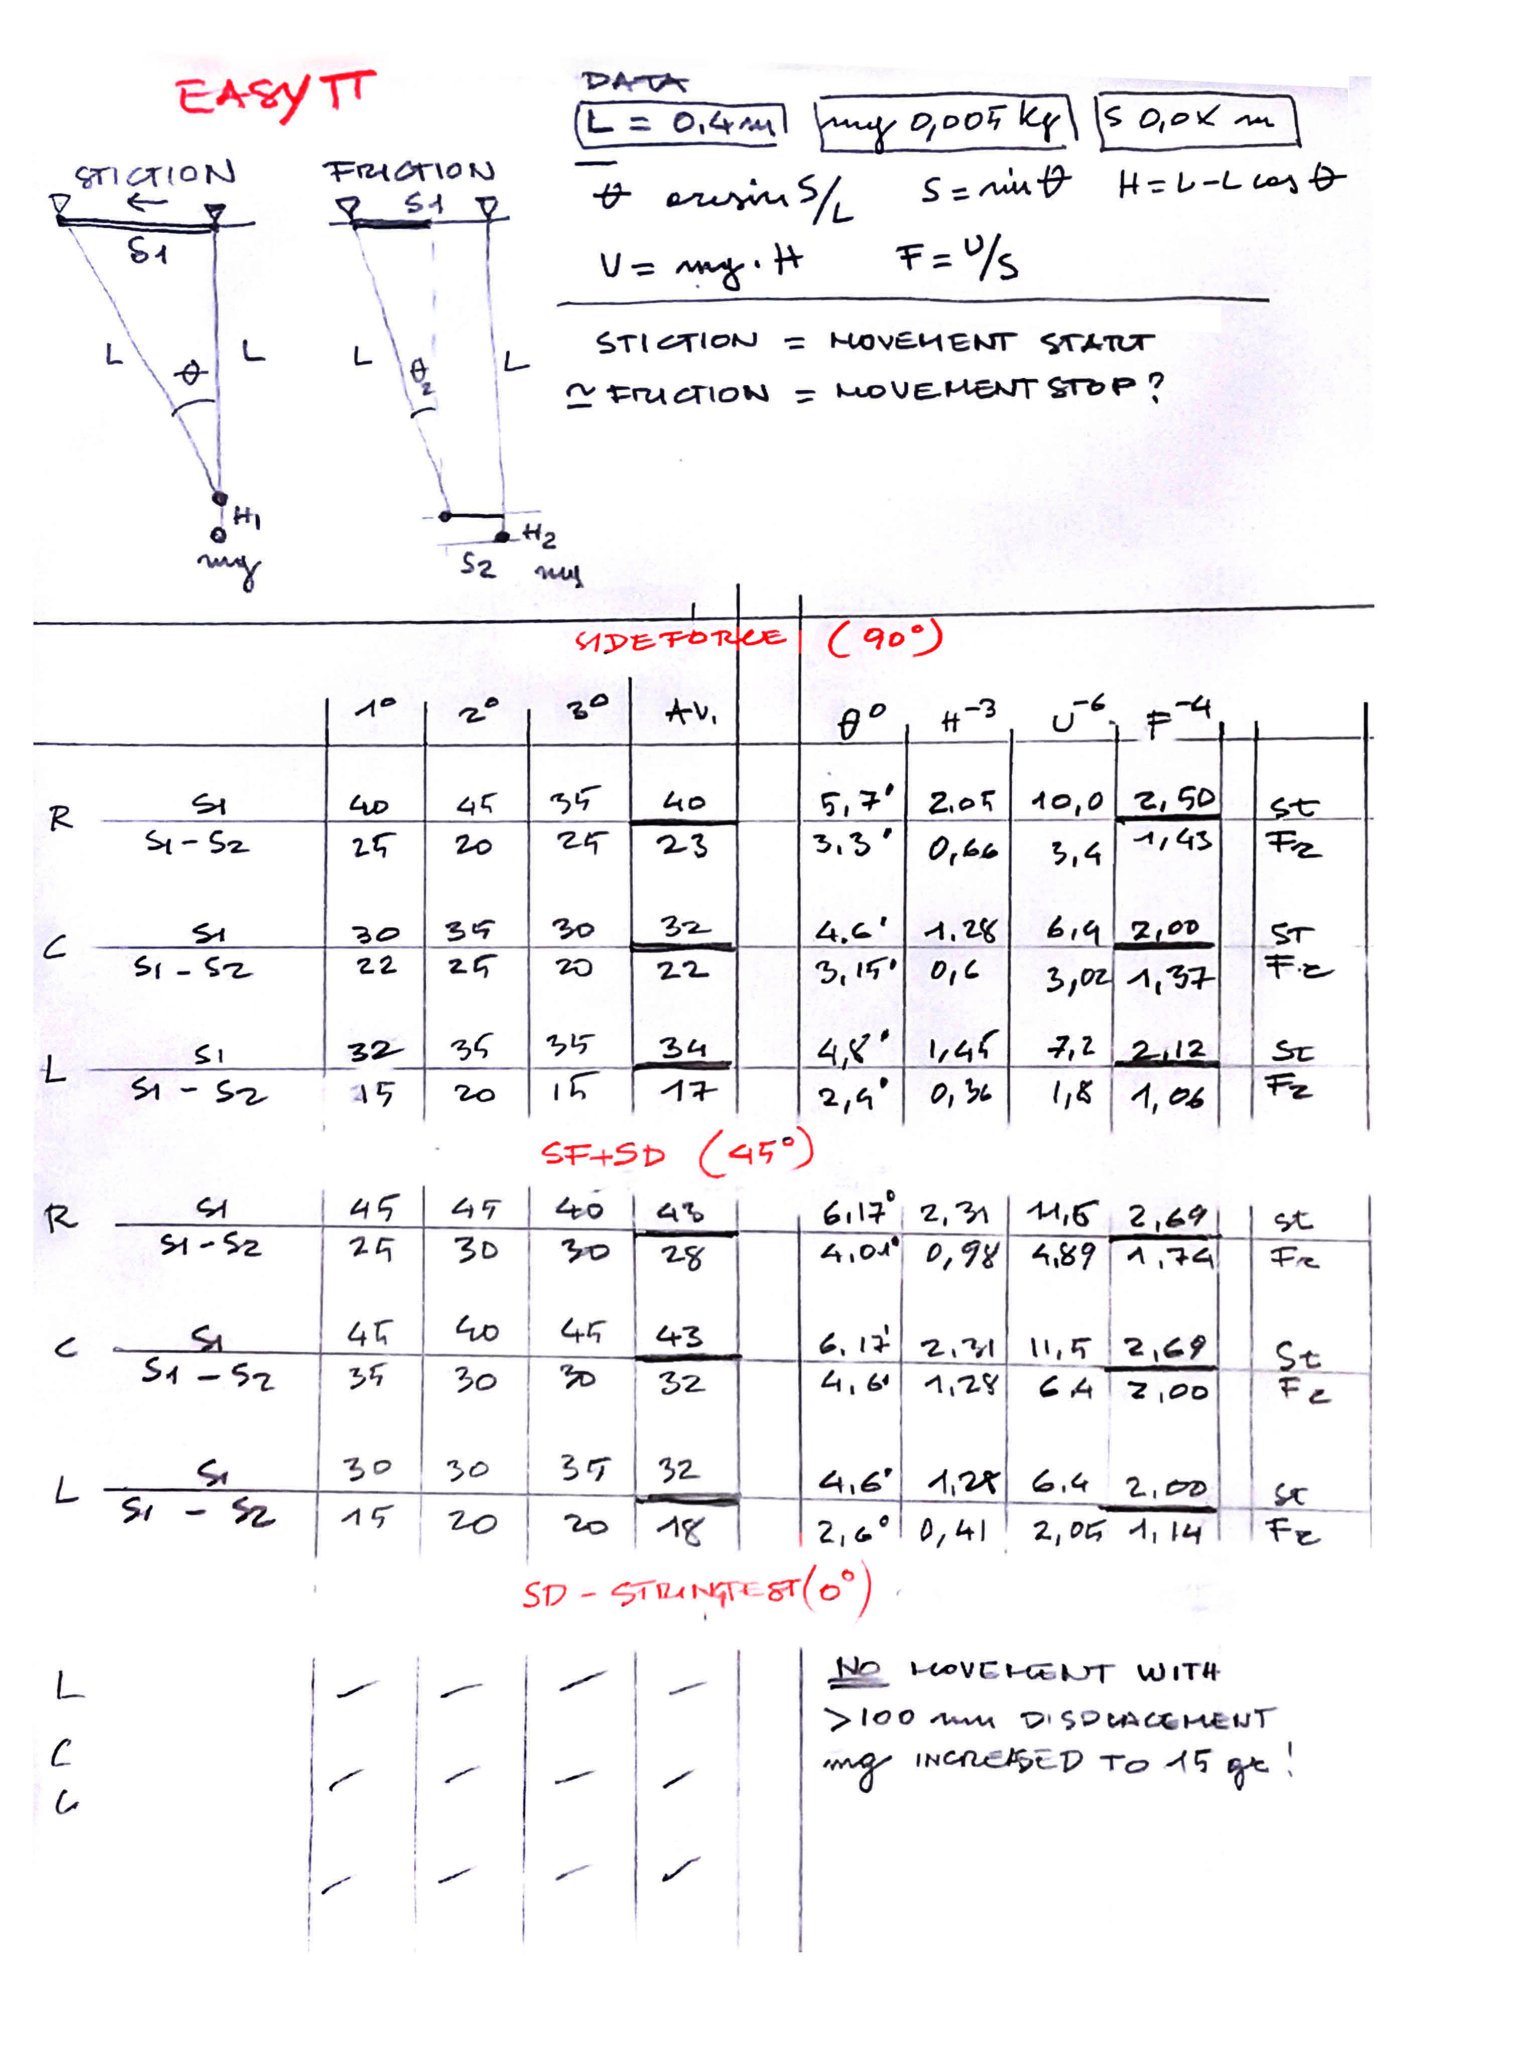 EASY TT
DATA
L = 0,4 m
mg 0,005 Kg
S 0,0X m
STICTION
FRICTION
←
S1
S1
L
L
L
L
θ
θ2
H1
mg
S2
H2
mg
θ arcsin S/L S = sin θ H = L - L cos θ
U = mg . H F = U/S
STICTION = MOVEMENT START
≃ FRICTION = MOVEMENT STOP?
SIDEFORCE (90°)
1° 2° 3° AV. θ° H⁻³ U⁻⁶ F⁻⁴
R S1 40 45 35 40 5,7° 2.05 10,0 2,50 St
S1 - S2 25 20 25 23 3,3° 0,66 3,4 1,43 Fr
C S1 30 35 30 32 4.6° 1.28 6,4 2,00 ST
S1 - S2 22 25 20 22 3,15° 0,6 3,02 1,37 Fr
L S1 32 35 35 34 4,8° 1,45 7,2 2,12 St
S1 - S2 15 20 15 17 2,4° 0,36 1,8 1,06 Fr
SF+SD (45°)
R S1 45 45 40 43 6,17° 2,31 11,5 2,69 St
S1 - S2 25 30 30 28 4,01° 0,98 4,89 1,74 Fr
C S1 45 40 45 43 6,17° 2,31 11,5 2,69 St
S1 - S2 35 30 30 32 4,6° 1,28 6.4 2,00 Fr
L S1 30 30 35 32 4,6° 1,28 6.4 2,00 St
S1 - S2 15 20 20 18 2,6° 0,41 2,05 1,14 Fr
SD - STRINGTEST (0°)
L – – – –
C – – – –
– – – –
NO MOVEMENT WITH
>100 mm DISPLACEMENT
mg INCREASED TO 15 gr!